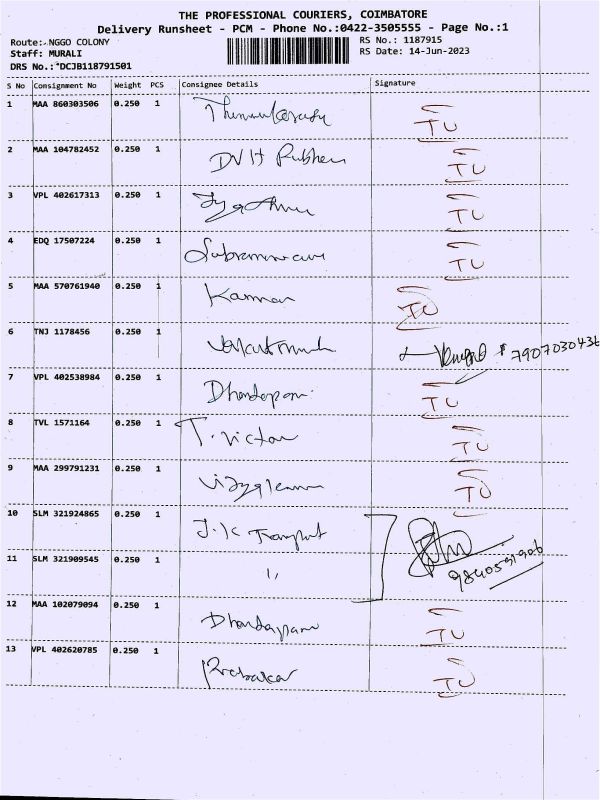 THE PROFESSIONAL COURIERS, COIMBATORE
Delivery Runsheet - PCM - Phone No.:0422-3505555 - Page No.:1
Route: NGGO COLONY RS No.: 1187915
Staff: MURALI RS Date: 14-Jun-2023
DRS No.:*DCJB118791501
S No Consignment No Weight PCS Consignee Details Signature
1 MAA 860303506 0.250 1 TU
2 MAA 104782452 0.250 1 DV H TU
3 VPL 402617313 0.250 1 TU
4 EDQ 17507224 0.250 1 TU
5 MAA 570761940 0.250 1 Kannan TU
6 TNJ 1178456 0.250 1 7907030436
7 VPL 402538984 0.250 1 Dhandapani TU
8 TVL 1571164 0.250 1 T. Victor TU
9 MAA 299791231 0.250 1 TU
10 SLM 321924865 0.250 1 J.K Transport
11 SLM 321909545 0.250 1 ,,
12 MAA 102079094 0.250 1 Dhandapani TU
13 VPL 402620785 0.250 1 Prabakar TU